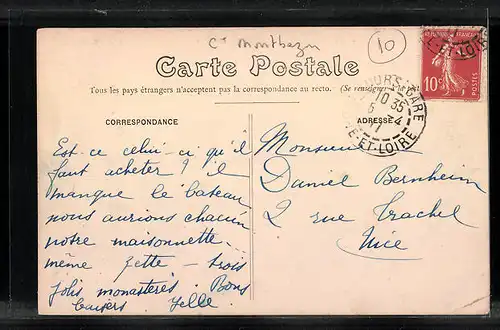 Ct Montbazon
10
Carte Postale
Tous les pays étrangers n'acceptent pas la correspondance au recto. (Se renseigner
POSTES
10c
TOURS-GARE
10 35
5 4
ET-LOIRE
CORRESPONDANCE
ADRESSE
Est-ce celui-ci qu'il
faut acheter ? il
manque le bateau
nous aurions chacun
notre maisonnette
même Zette - trois
jolis monastères. Bons
baisers
Monsieur
Daniel Bernheim
2 rue Trachel
Nice